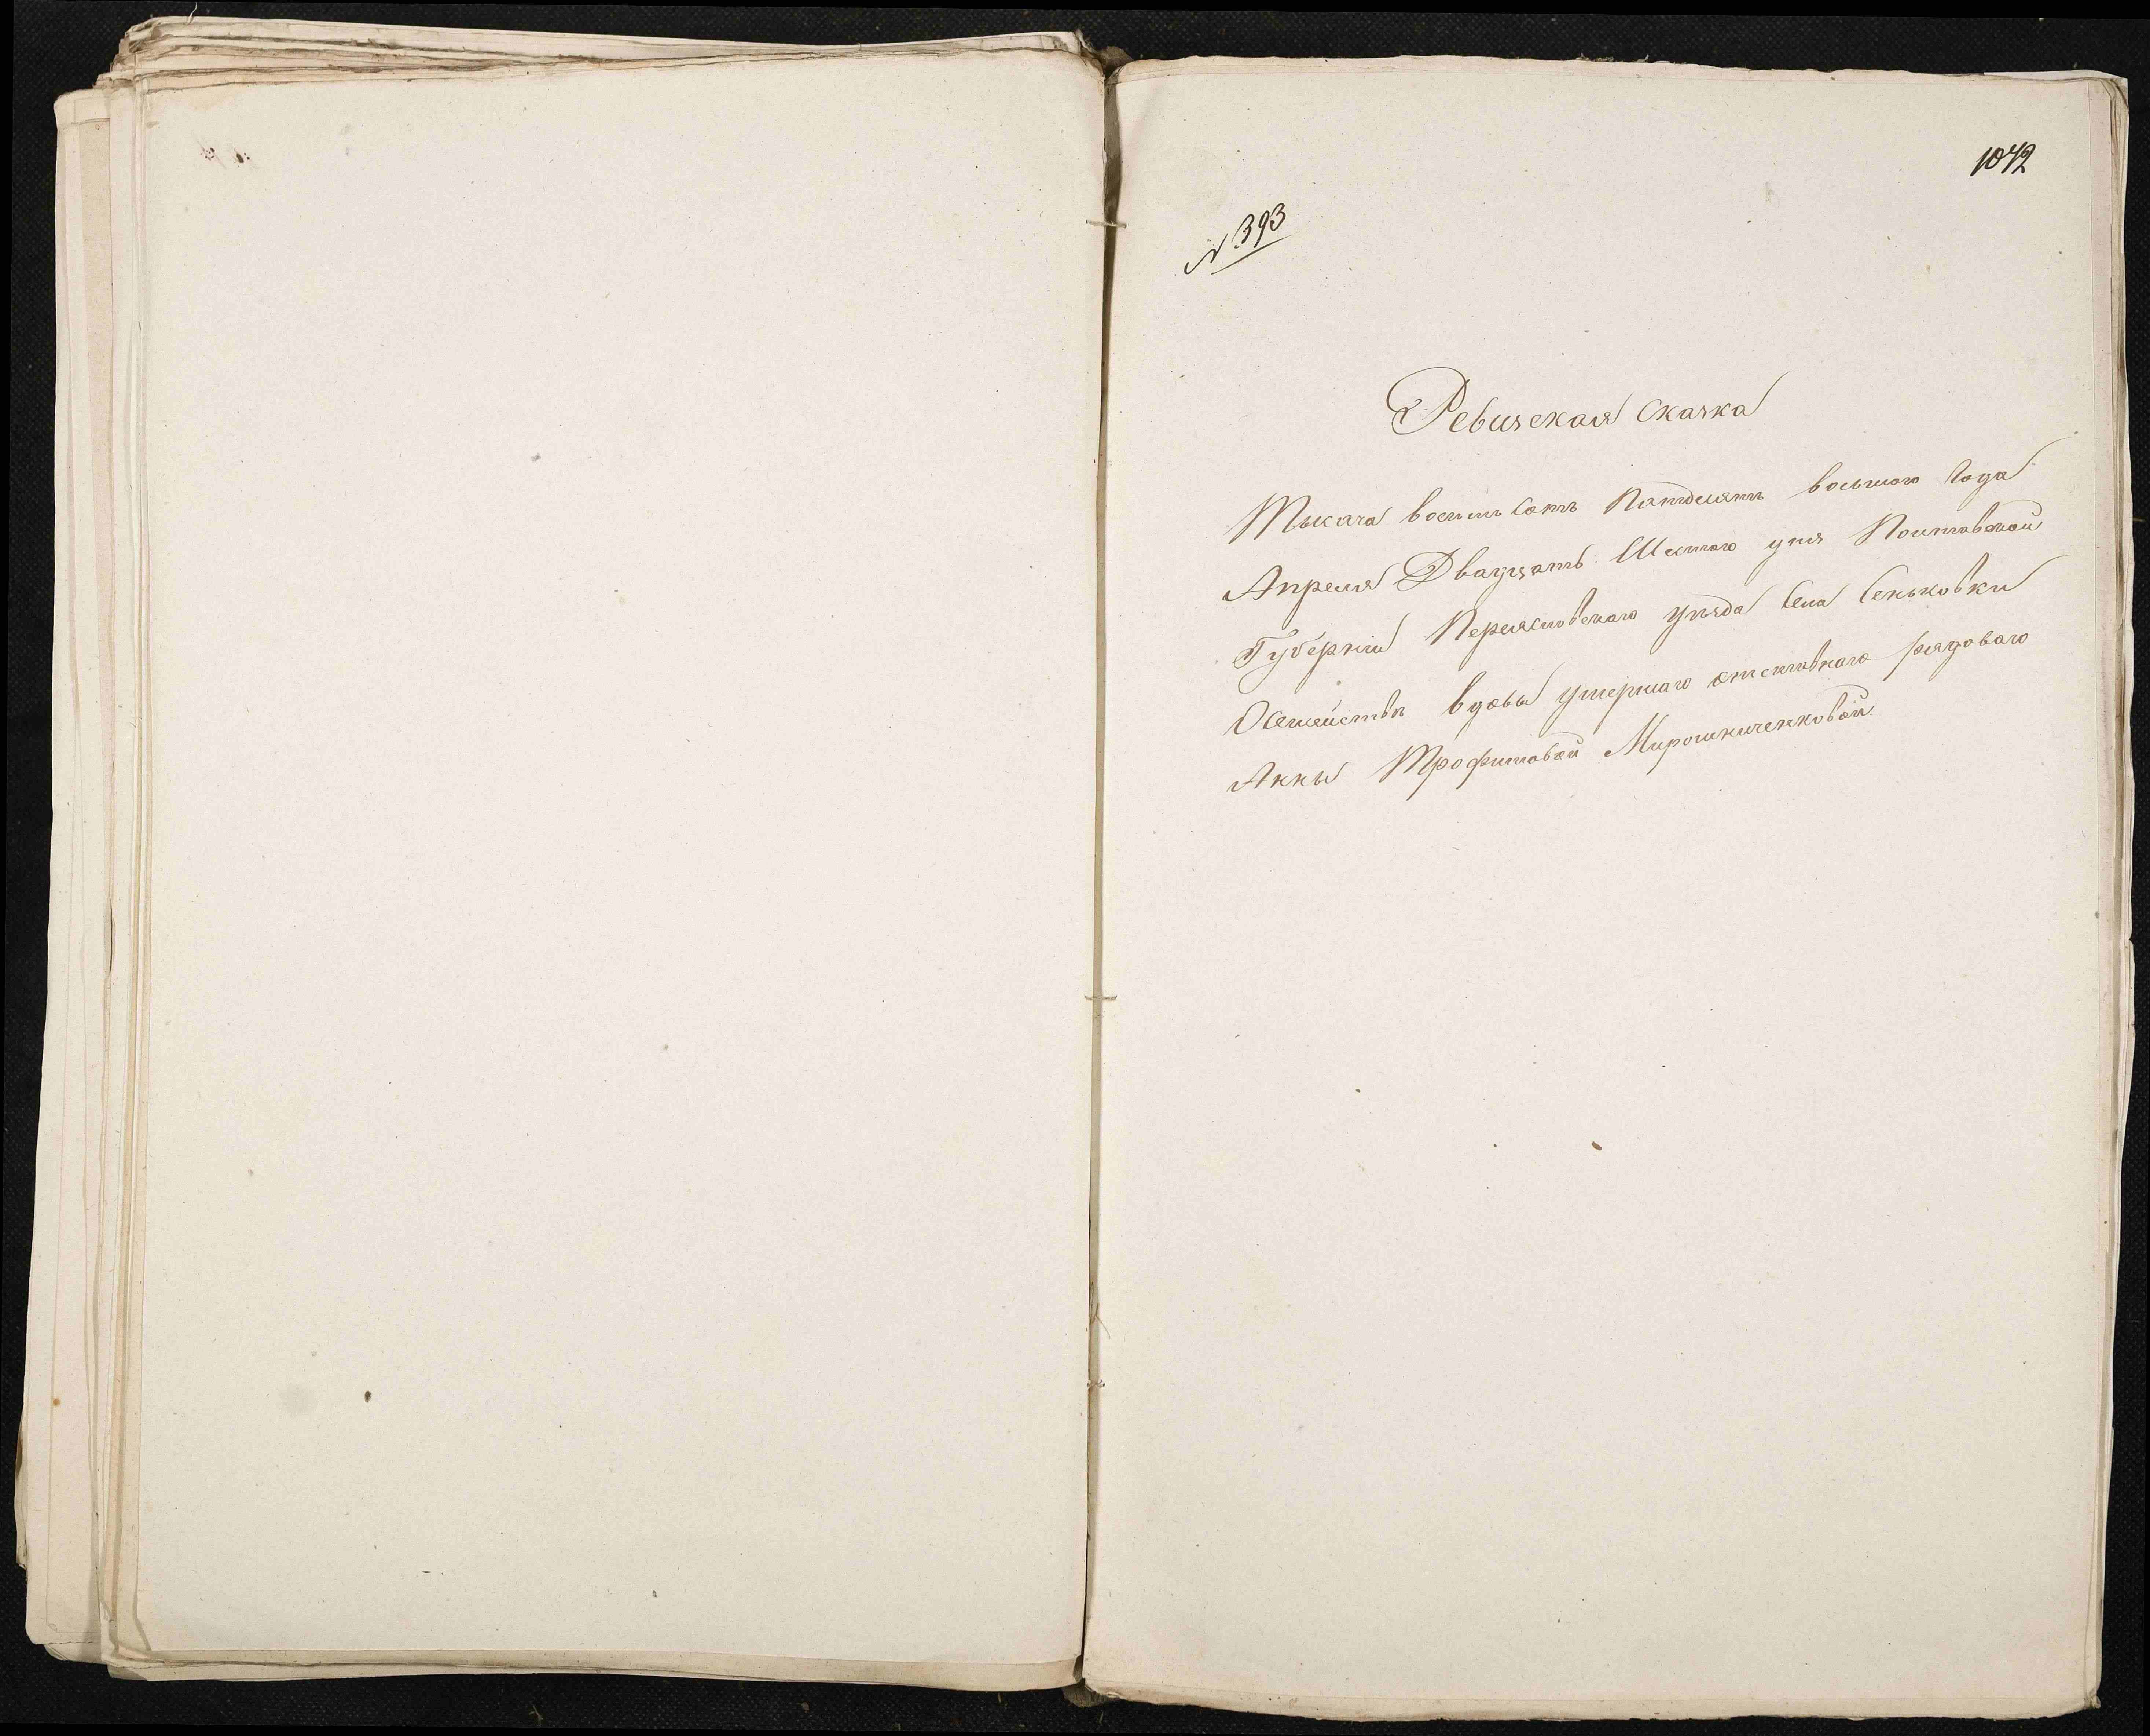 1042
№ 393
Ревизская Сказка
Тысяча восемьсотъ Пятдесятъ восьмого Года
Апреля Двадцать Шестого дня Полтавской
Губерніи Переяславскаго уѣзда Села Сеньковки
О Семействѣ вдовы умершаго отставнаго рядоваго
Анны Трофимовой Мирошниченковой